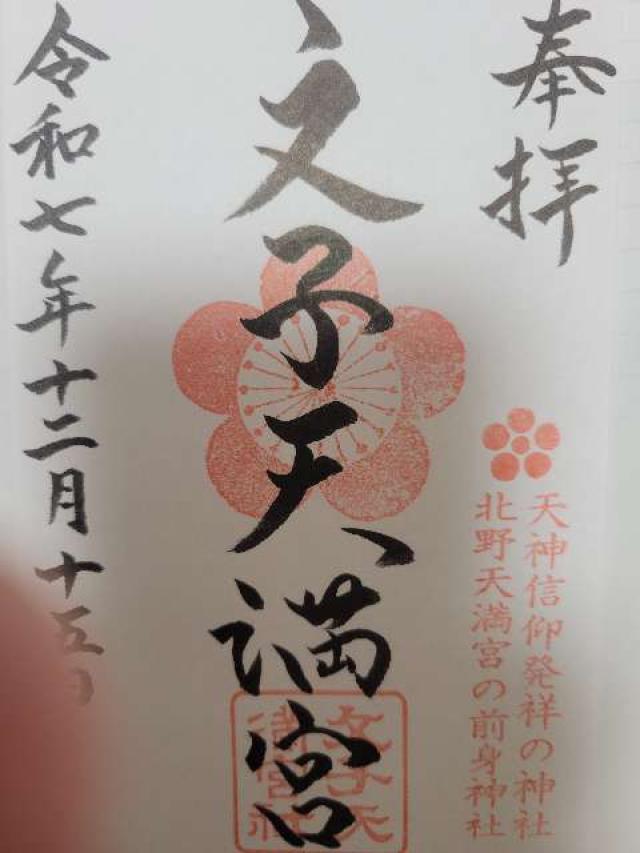 奉拝
天神信仰発祥の神社
北野天満宮の前身神社
文子天満宮
文子天
満宮社
令和七年十二月十五日